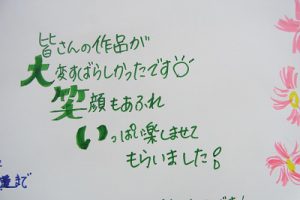 皆さんの作品が
大変すばらしかったです
笑顔もあふれ
いっぱい楽しませて
もらいました!
まで